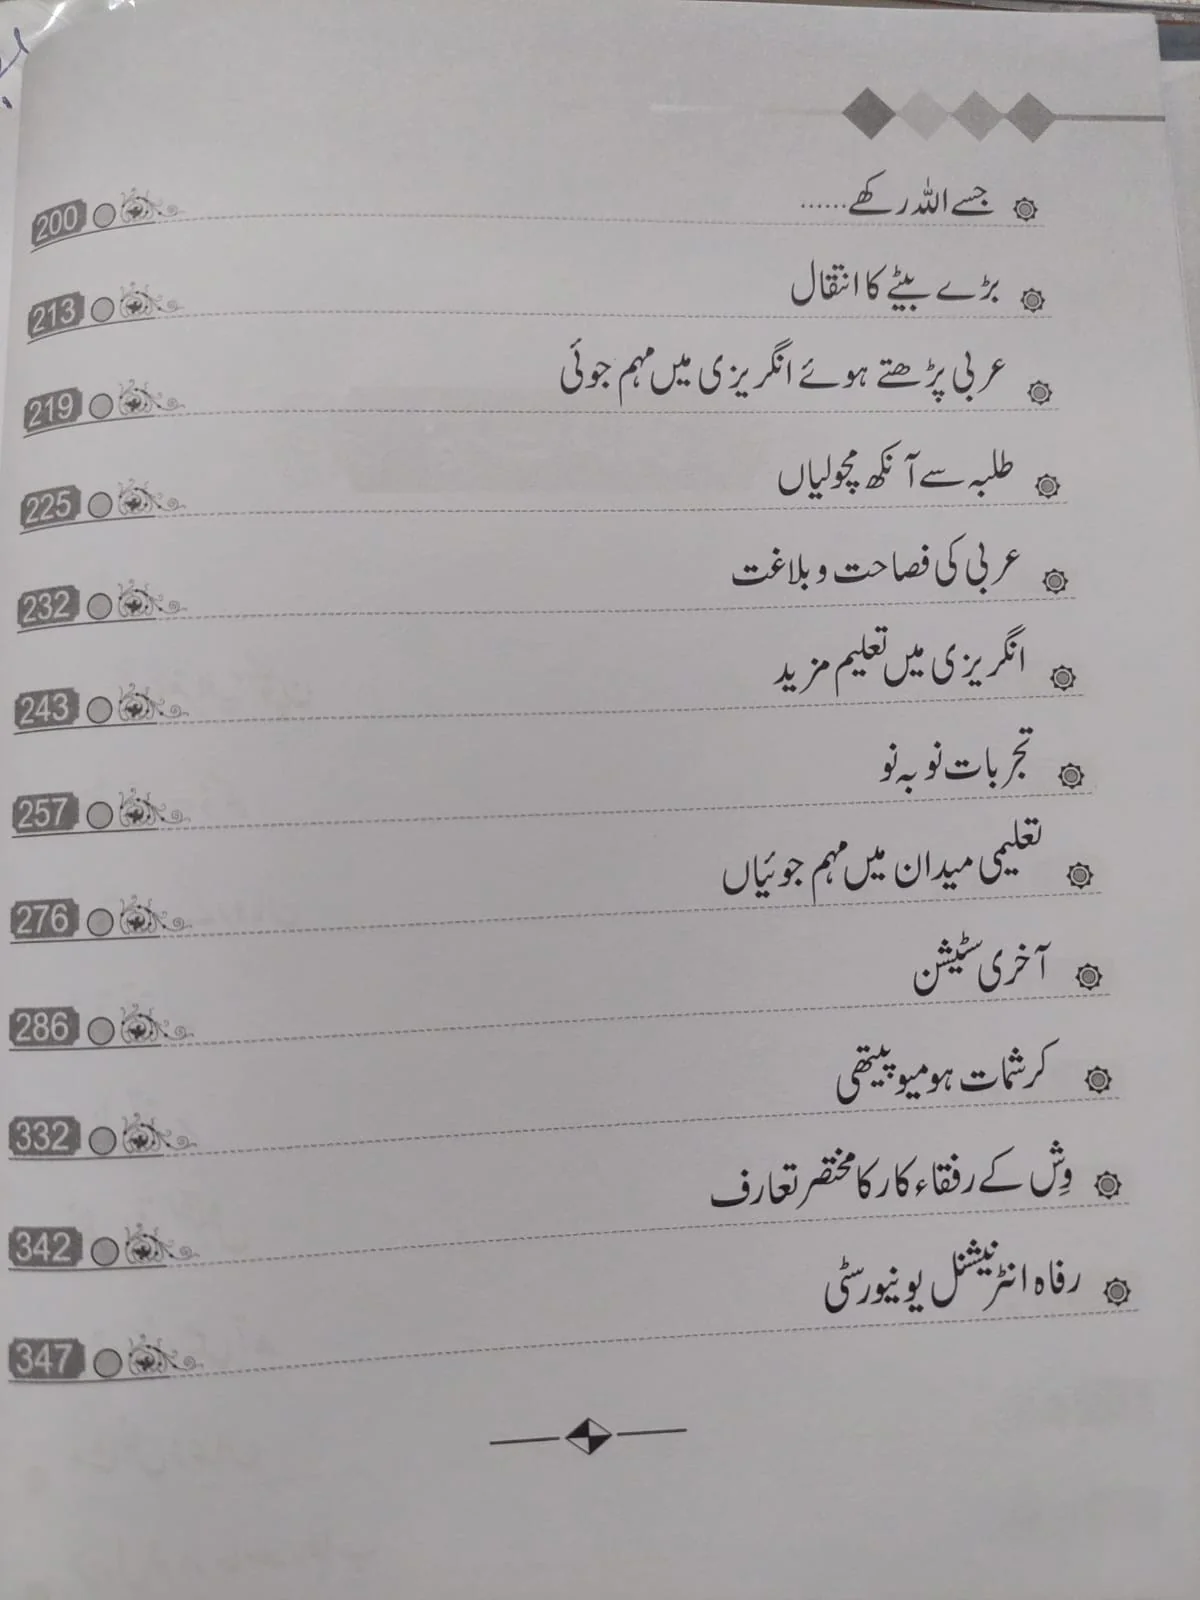 جسے اللہ رکھے...... 200
بڑے بیٹے کا انتقال 213
عربی پڑھتے ہوئے انگریزی میں مہم جوئی 219
طلبہ سے آنکھ مچولیاں 225
عربی کی فصاحت و بلاغت 232
انگریزی میں تعلیم مزید 243
تجربات نو بہ نو 257
تعلیمی میدان میں مہم جوئیاں 276
آخری سٹیشن 286
کرشمات ہومیوپیتھی 332
وِش کے رفقاء کار کا مختصر تعارف 342
رفاہ انٹرنیشنل یونیورسٹی 347